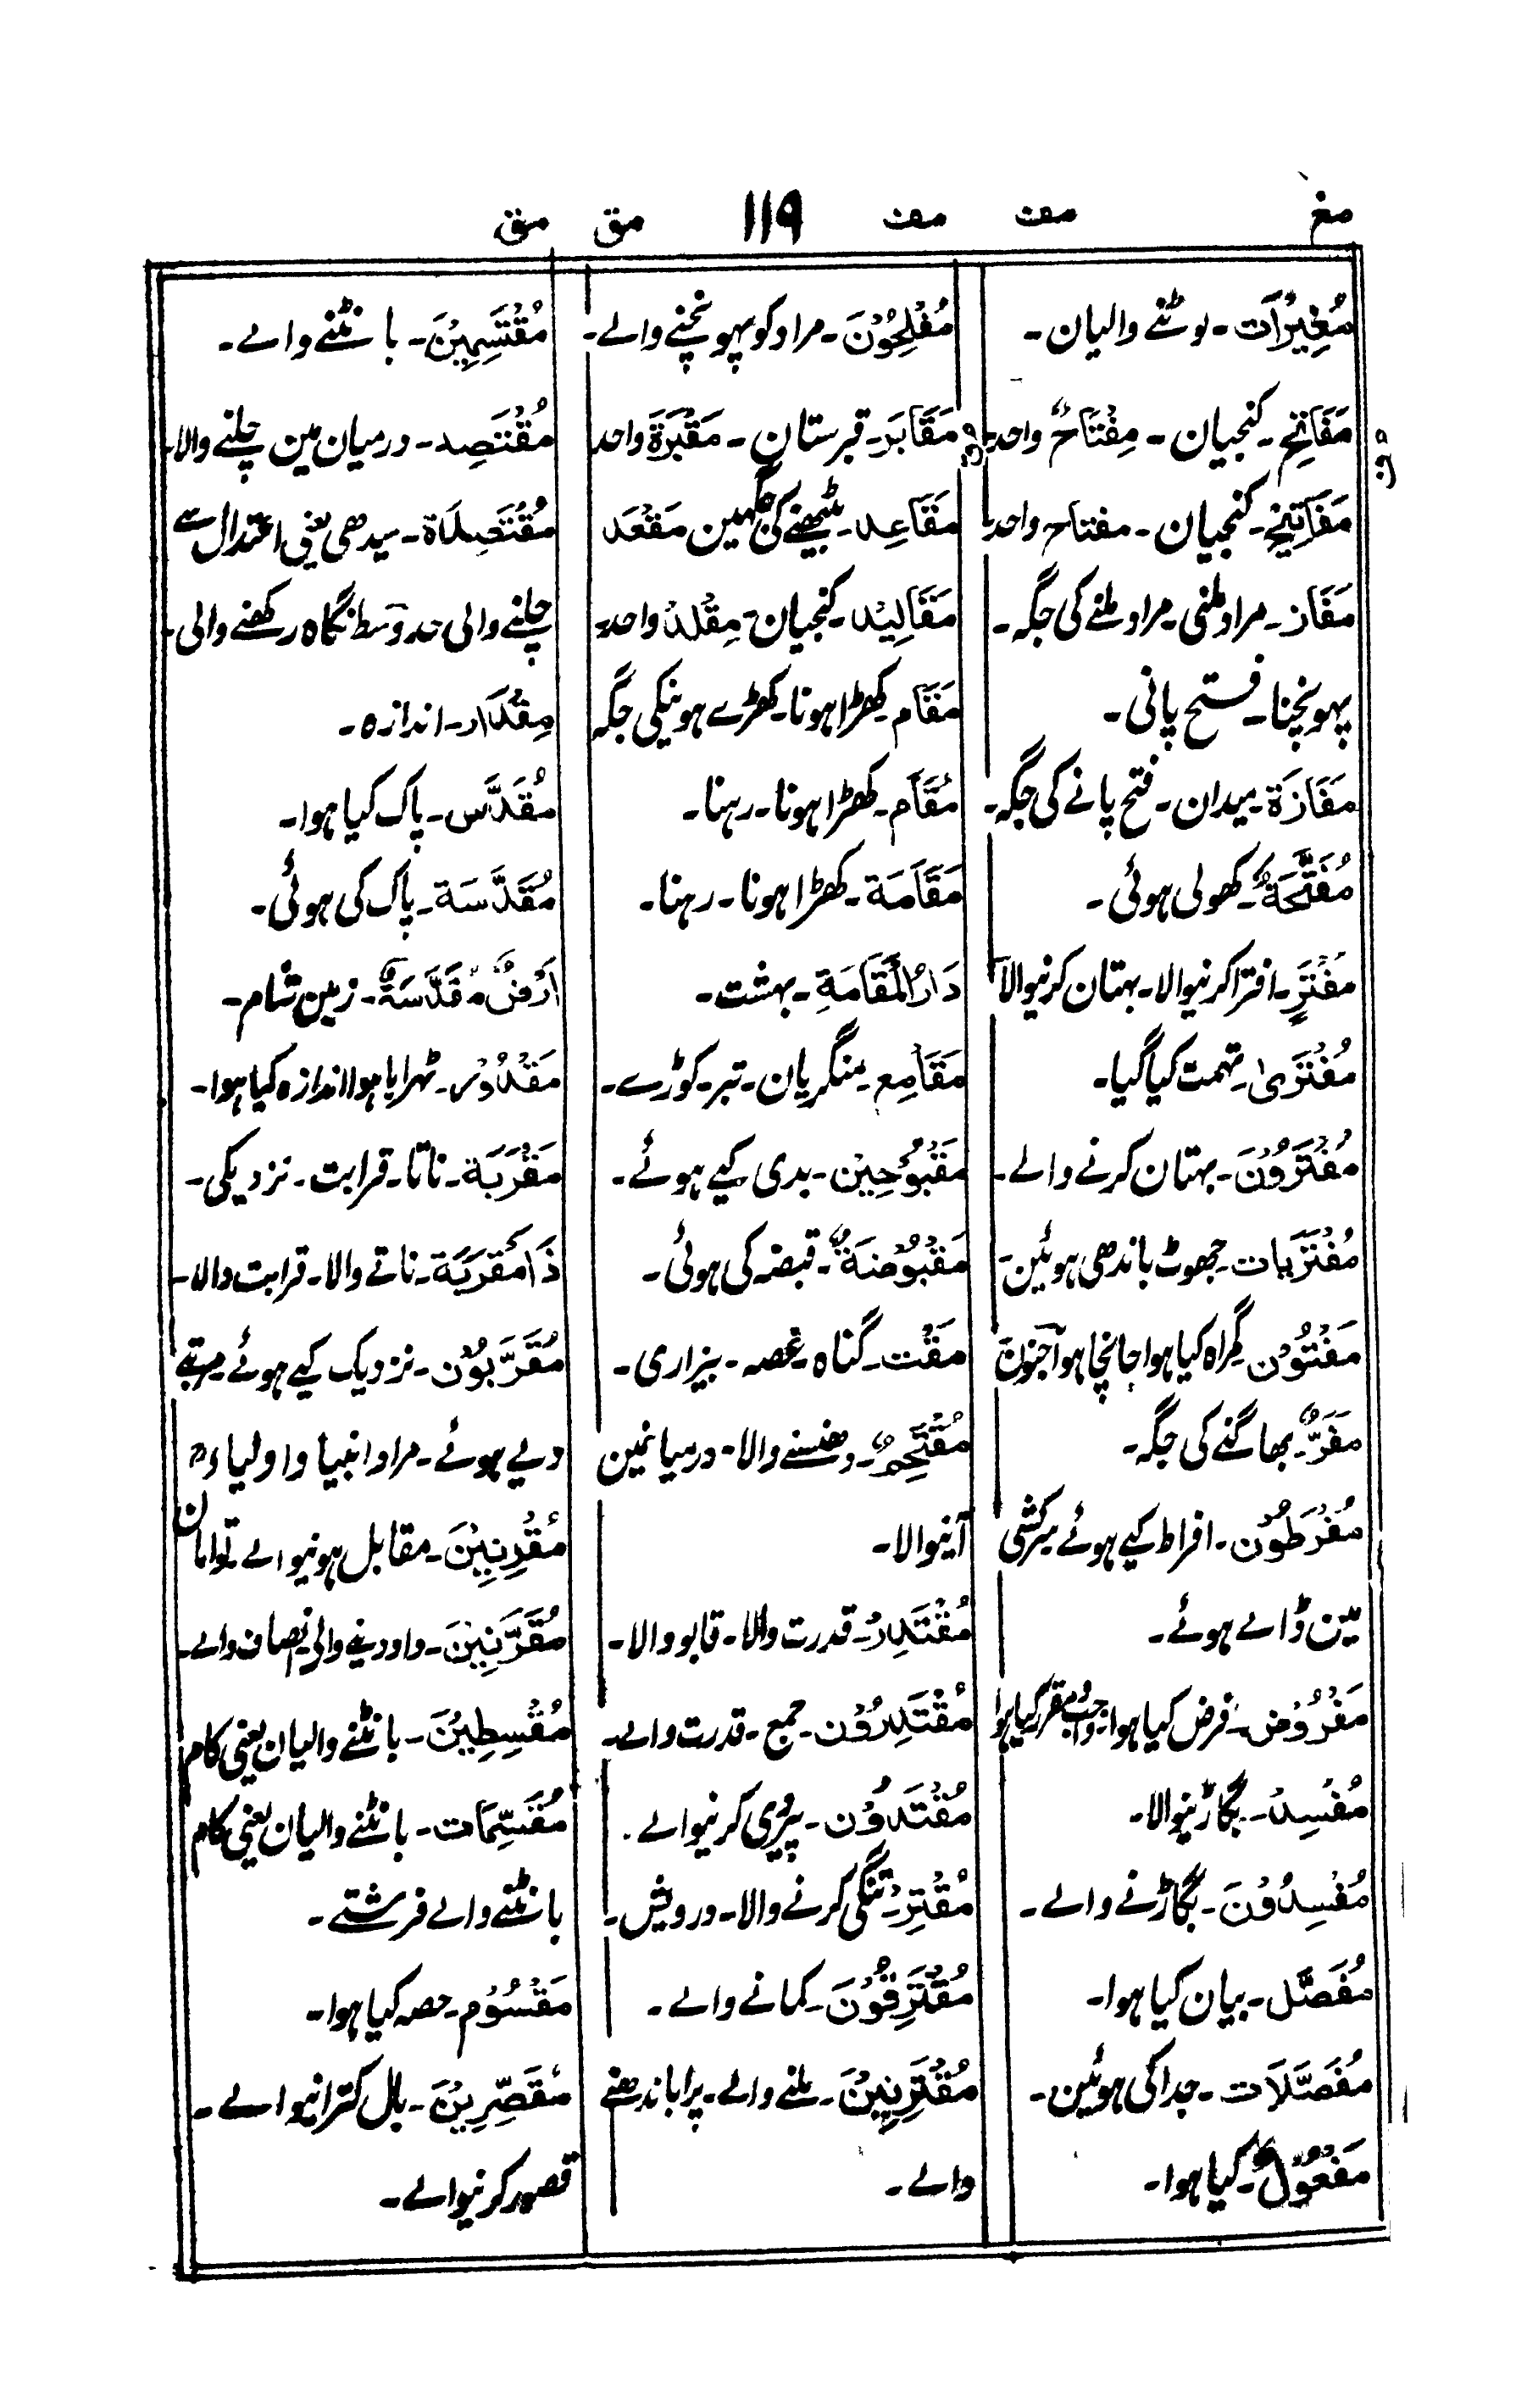 مغ مف مف ۱۱۹ مق مق
مُغِیْرَات ۔ لوٹنے والیان ۔
مَفَاتِحَ ۔ کنجیان ۔ مِفْتَاحٌ واحد
مَفَاتِیْحَ ۔ کنجیان ۔ مفتاح واحد
مَفَاز ۔ مراد ملنی ۔ مراد ملنے کی جگہ ۔
پہونچنا ۔ فتح پانی ۔
مَفَازَة ۔ میدان ۔ فتح پانے کی جگہ ۔
مُفَتَّحَةٌ ۔ کھولی ہوئی ۔
مُفْتَرٍ ۔ افترا کرنیوالا ۔ بہتان کرنیوالا
مُفْتَرَیٰ ۔ تہمت کیا گیا ۔
مُفْتَرُوْنَ ۔ بہتان کرنے والے ۔
مُفْتَرَیَات ۔ جھوٹ باندھی ہوئین ۔
مَفْتُوْن ۔ گمراہ کیا ہوا جانچا ہوا ۔ جنون
مَفَرٌّ ۔ بھاگنے کی جگہ ۔
مُفْرَطُوْن ۔ افراط کیے ہوئے سرکشی
مین ڈالے ہوئے ۔
مَفْرُوْض ۔ فرض کیا ہوا ۔ واجب مقرر کیا ہوا
مُفْسِدُ ۔ بگاڑنیوالا ۔
مُفْسِدُوْنَ ۔ بگاڑنے والے ۔
مُفَصَّل ۔ بیان کیا ہوا ۔
مُفَصَّلَات ۔ جدا کی ہوئین ۔
مَفْعُوْلٌ ۔ کیا ہوا ۔
مُفْلِحُوْنَ ۔ مراد کو پہونچنے والے ۔
مَقَابَرَ ۔ قبرستان ۔ مَقْبَرَة واحد
مَقَاعِد ۔ بیٹھنے کی جگہین مَقْعَد
مَقَالِیْد ۔ کنجیان ۔ مِقْلَدْ واحد ۔
مَقَام ۔ کھڑا ہونا ۔ کھڑے ہونیکی جگہ
مُقَام ۔ کھڑا ہونا ۔ رہنا ۔
مَقَامَة ۔ کھڑا ہونا ۔ رہنا ۔
دَارُ الْمَقَامَةِ ۔ بہشت ۔
مَقَامِع ۔ منگریان ۔ تبر ۔ کوڑے ۔
مَقْبُوْحِیْن ۔ بدی کیے ہوئے ۔
مَقْبُوْضَةٌ ۔ قبضہ کی ہوئی ۔
مَقْت ۔ گناہ ۔ غصہ ۔ بیزاری ۔
مُقْتَحِمٌ ۔ دھنسنے والا ۔ درمیانمین
آنیوالا ۔
مُقْتَدِرُ ۔ قدرت والا ۔ قابو والا ۔
مُقْتَدِرُوْن ۔ جمع ۔ قدرت والے ۔
مُقْتَدُوْن ۔ پیروی کرنیوالے ۔
مُقْتِرِ ۔ تنگی کرنے والا ۔ درویش ۔
مُقْتَرِفُوْنَ ۔ کمانے والے ۔
مُقْتَرِنِیْنَ ۔ ملنے والے ۔ پرا باندھنے
والے ۔
مُقْتَسِمِیْنَ ۔ بانٹنے والے ۔
مُقْتَصِد ۔ درمیان مین چلنے والا ۔
مُقْتَصِدَة ۔ سیدھی یعنی اعتدال سے
چلنے والی حد وسط نگاہ رکھنے والی ۔
مِقْدَار ۔ اندازہ ۔
مُقَدَّس ۔ پاک کیا ہوا ۔
مُقَدَّسَة ۔ پاک کی ہوئی ۔
اَرْضٌ مُقَدَّسَةٌ ۔ زمین شام ۔
مَقْدُوْر ۔ ٹہرایا ہوا اندازہ کیا ہوا ۔
مَقْرَبَة ۔ ناتا ۔ قرابت ۔ نزدیکی ۔
ذَا مَقْرَبَة ۔ ناتے والا ۔ قرابت والا ۔
مُقَرَّبُوْن ۔ نزدیک کیے ہوئے مرتبے
دیے ہوئے ۔ مراد انبیا و اولیاء
مُقْرِنِیْنَ ۔ مقابل ہونیوالے توانا
مُقَرَّنِیْنَ ۔ داد دینے والے انصاف والے ۔
مُقْسِطِیْنَ ۔ بانٹنے والیان یعنی کام
مُقَسِّمَات ۔ بانٹنے والیان یعنی کام
بانٹنے والے فرشتے ۔
مَقْسُوْم ۔ حصہ کیا ہوا ۔
مُقَصِّرِیْنَ ۔ بال کترانیوالے ۔
قصور کرنیوالے ۔